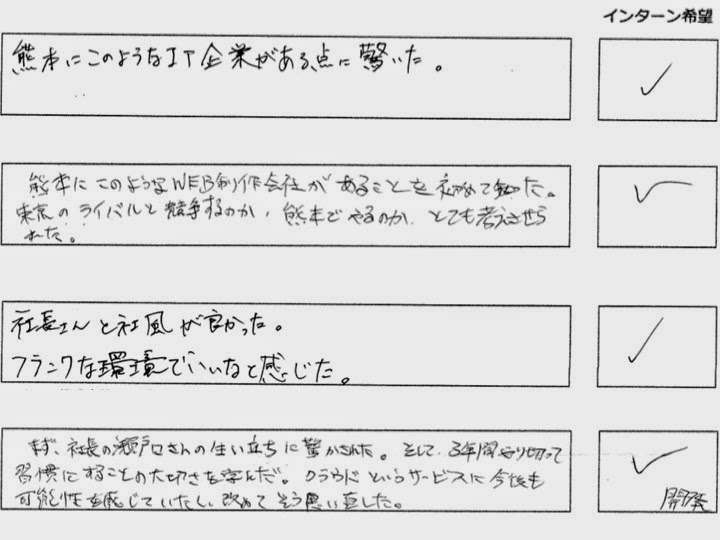 インターン希望
熊本にこのようなIT企業がある点に驚いた。
熊本にこのようなWEB制作会社があることを初めて知った。
東京のライバルと競争するのか、熊本でやるのか、とても考えさせら
れた。
社長さんと社風が良かった。
フランクな環境でいいなと感じた。
まず、社長の瀬戸口さんの生い立ちに驚かされた。そして、3年間やり切って
習慣にすることの大切さを学んだ。クラウドというサービスに今後も
可能性を感じていたし、改めてそう思い直した。
開発